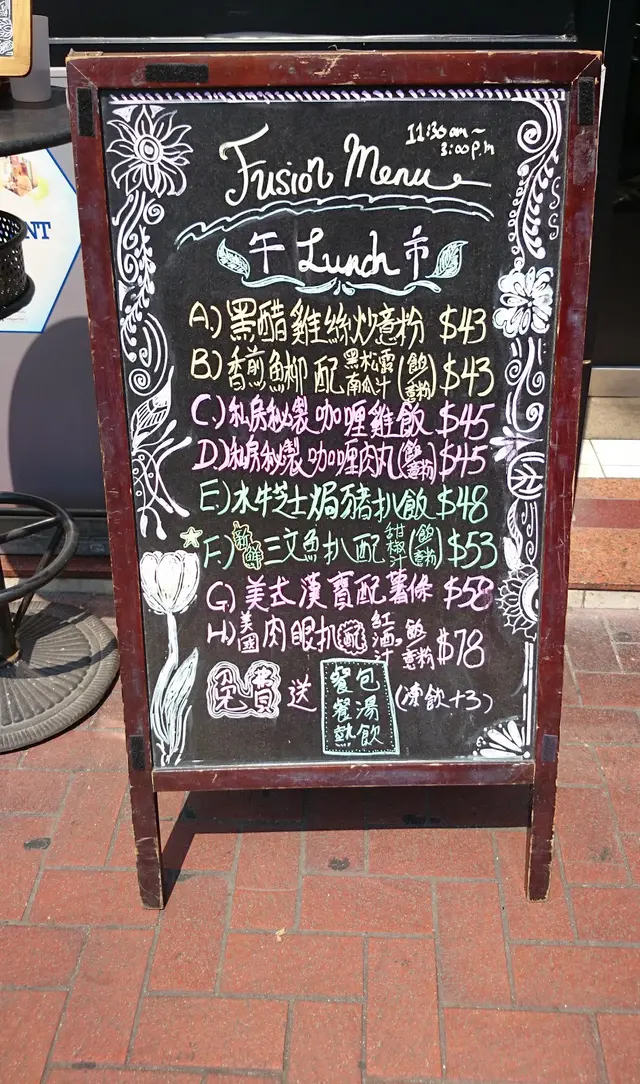 11:30am~
3:00p.m
Fusion Menu
午 Lunch 市
A.) 黑醋雞絲炒意粉 $43
B.) 香煎魚柳配黑松露南瓜汁(飯/意粉) $43
C.) 私房秘製咖喱雞飯 $45
D.) 私房秘製咖喱肉丸(飯/意粉) $45
E.) 水牛芝士焗豬扒飯 $48
F.) 新鮮三文魚扒配甜椒汁(飯/意粉) $53
G.) 美式漢寶配薯條 $58
H.) 美國肉眼扒配紅酒汁 飯/意粉 $78
免費送
餐包
餐湯
熱飲
(凍飲+3)
NT